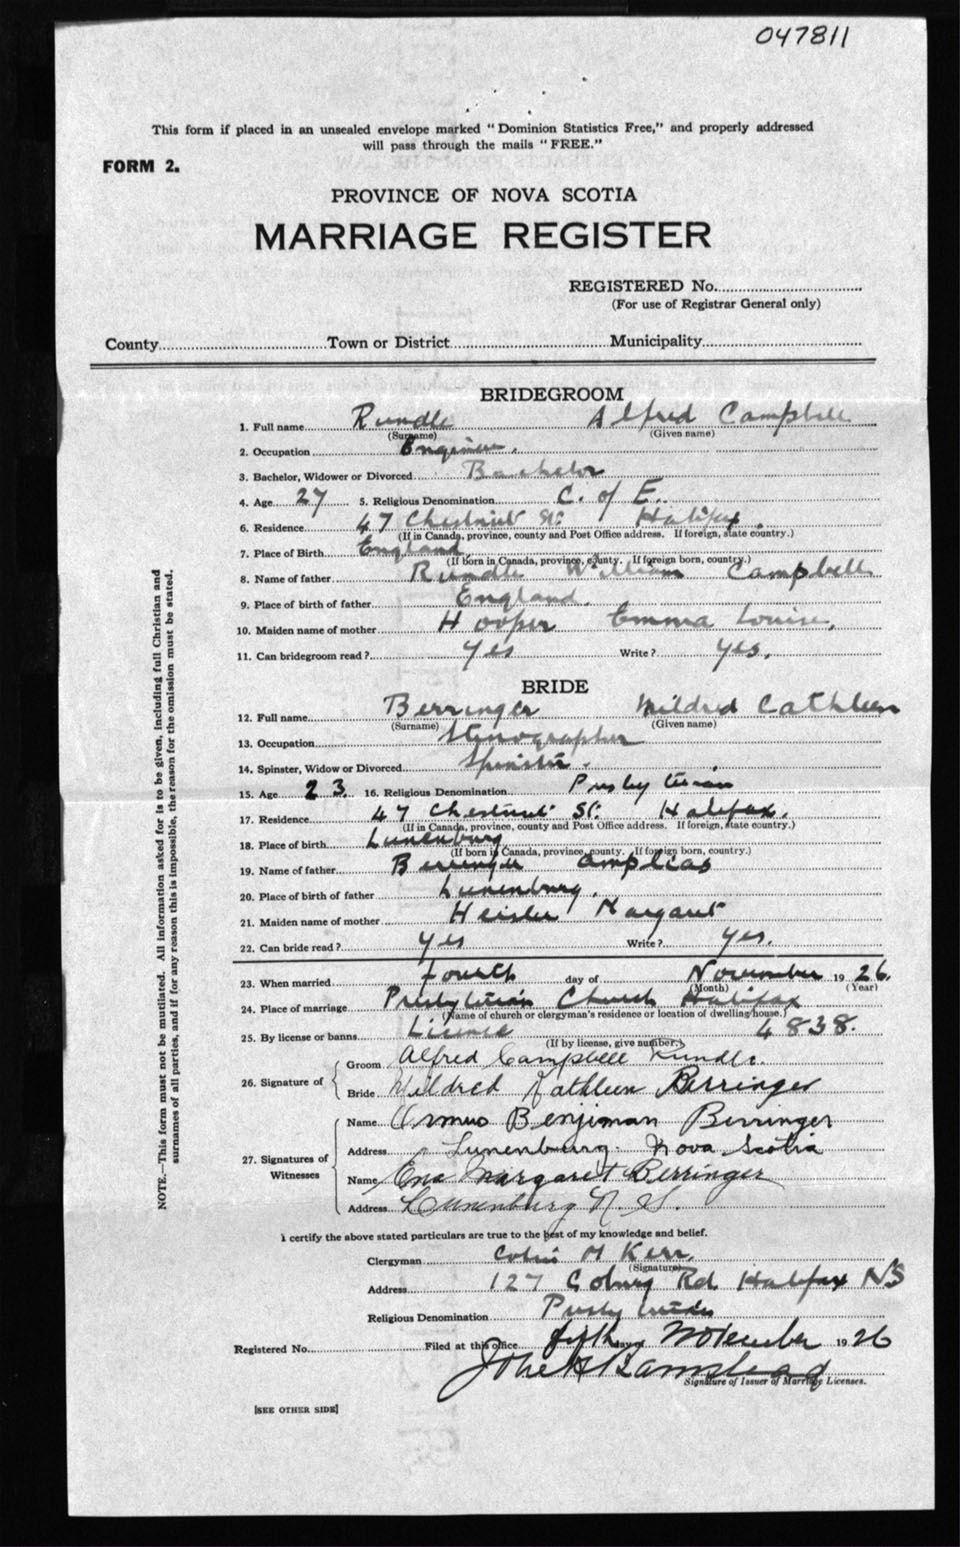 047811
This form if placed in an unsealed envelope marked "Dominion Statistics Free," and properly addressed
will pass through the mails "FREE."
FORM 2.
PROVINCE OF NOVA SCOTIA
MARRIAGE REGISTER
REGISTERED No.
(For use of Registrar General only)
County Town or District Municipality
BRIDEGROOM
1. Full name Rundle Alfred Campbell
(Surname) (Given name)
2. Occupation Engineer.
3. Bachelor, Widower or Divorced Bachelor
4. Age 27 5. Religious Denomination C. of E.
6. Residence 47 Chestnut St. Halifax.
(If in Canada, province, county and Post Office address. If foreign, state country.)
7. Place of Birth England
(If born in Canada, province, county. If foreign born, country.)
8. Name of father Rundle William Campbell
9. Place of birth of father England.
10. Maiden name of mother Hooper Emma Louise,
11. Can bridegroom read? Yes Write? Yes.
BRIDE
12. Full name Berringer Mildred Cathleen
(Surname) (Given name)
13. Occupation Stenographer
14. Spinster, Widow or Divorced Spinster.
15. Age 23. 16. Religious Denomination Presbyterian
17. Residence 47 Chestnut St. Halifax.
(If in Canada, province, county and Post Office address. If foreign, state country.)
18. Place of birth Lunenburg
(If born in Canada, province, county. If foreign born, country.)
19. Name of father Berringer Amplias
20. Place of birth of father Lunenburg.
21. Maiden name of mother Heisler Margaret
22. Can bride read? Yes Write? Yes.
23. When married fourth day of November 1926.
(Month) (Year)
24. Place of marriage Presbyterian Church Halifax
(Name of church or clergyman's residence or location of dwelling/house.)
25. By license or banns License 4838.
(If by license, give number.)
26. Signature of Groom Alfred Campbell Rundle.
Bride Mildred Kathleen Berringer
27. Signatures of Witnesses Name Ormus Benjiman Berringer
Address Lunenburg Nova Scotia
Name Ena Margaret Berringer
Address Lunenburg N. S.
I certify the above stated particulars are true to the best of my knowledge and belief.
Clergyman Colin M Kerr.
(Signature)
Address 127 Coburg Rd Halifax NS
Religious Denomination Presbyterian
Registered No. Filed at this office fifth day November 1926
Signature of Issuer of Marriage Licenses.
[SEE OTHER SIDE]
NOTE.—This form must not be mutilated. All information asked for is to be given, including full Christian and
surnames of all parties, and if for any reason this is impossible, the reason for the omission must be stated.